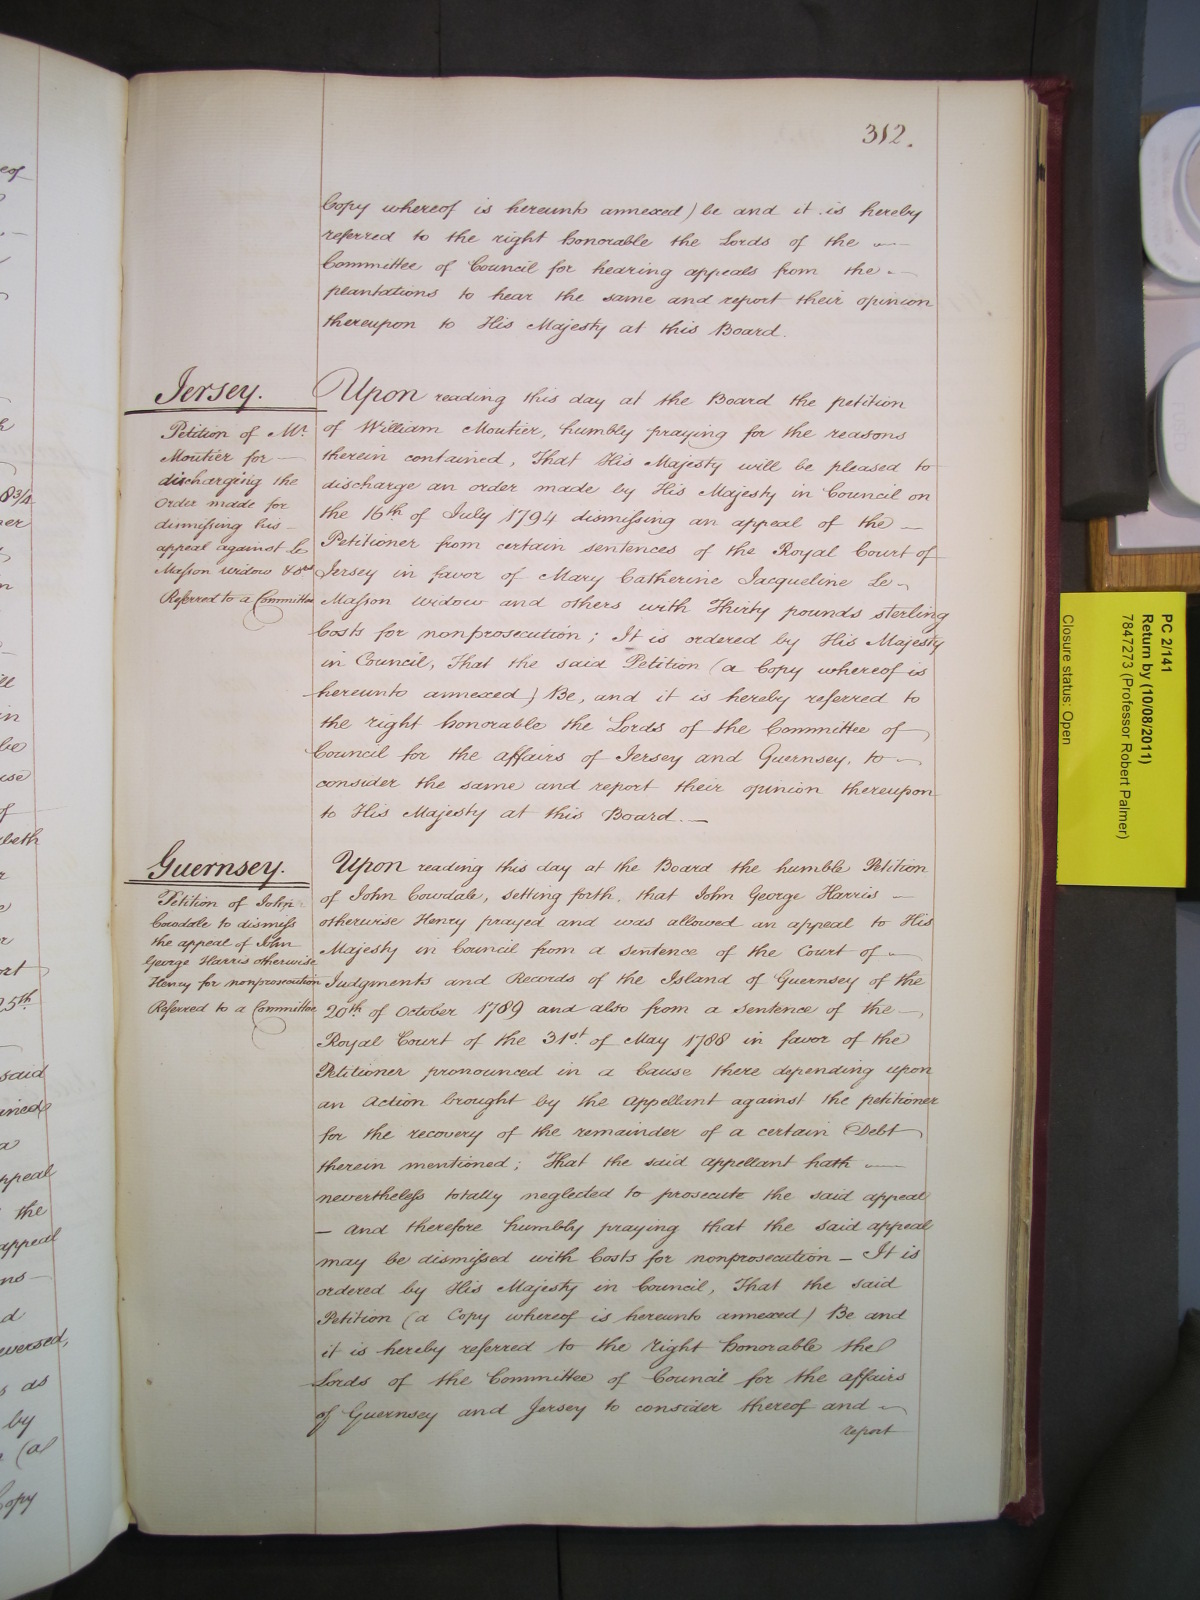 312.
Copy whereof is hereunto annexed) be and it is hereby
referred to the right honorable the Lords of the
Committee of Council for hearing appeals from the
plantations to hear the same and report their opinion
thereupon to His Majesty at this Board.
Jersey.
Petition of Mr.
Moutier for
discharging the
order made for
dismissing his
appeal against Le
Masson widow & ors
Referred to a Committee
Upon reading this day at the Board the petition
of William Moutier, humbly praying for the reasons
therein contained, That His Majesty will be pleased to
discharge an order made by His Majesty in Council on
the 16th of July 1794 dismissing an appeal of the
Petitioner from certain sentences of the Royal Court of
Jersey in favor of Mary Catherine Jacqueline Le
Masson widow and others with Thirty pounds sterling
Costs for nonprosecution; It is ordered by His Majesty
in Council, That the said Petition (a Copy whereof is
hereunto annexed) Be, and it is hereby referred to
the right honorable the Lords of the Committee of
Council for the affairs of Jersey and Guernsey, to
consider the same and report their opinion thereupon
to His Majesty at this Board.
Guernsey.
Petition of John
Cowdale to dismiss
the appeal of John
George Harris otherwise
Henry for nonprosecution
Referred to a Committee
Upon reading this day at the Board the humble Petition
of John Cowdale, setting forth, that John George Harris
otherwise Henry prayed and was allowed an appeal to His
Majesty in Council from a sentence of the Court of
Judgments and Records of the Island of Guernsey of the
20th of October 1789 and also from a sentence of the
Royal Court of the 31st of May 1788 in favor of the
Petitioner pronounced in a Cause there depending upon
an Action brought by the appellant against the petitioner
for the recovery of the remainder of a certain Debt
therein mentioned; That the said appellant hath
nevertheless totally neglected to prosecute the said appeal
— and therefore humbly praying that the said appeal
may be dismissed with Costs for nonprosecution — It is
ordered by His Majesty in Council, That the said
Petition (a Copy whereof is hereunto annexed) Be and
it is hereby referred to the right honorable the
Lords of the Committee of Council for the affairs
of Guernsey and Jersey to consider thereof and
report
PC 2/141
Return by (10/08/2011)
7847273 (Professor Robert Palmer)
Closure status: Open